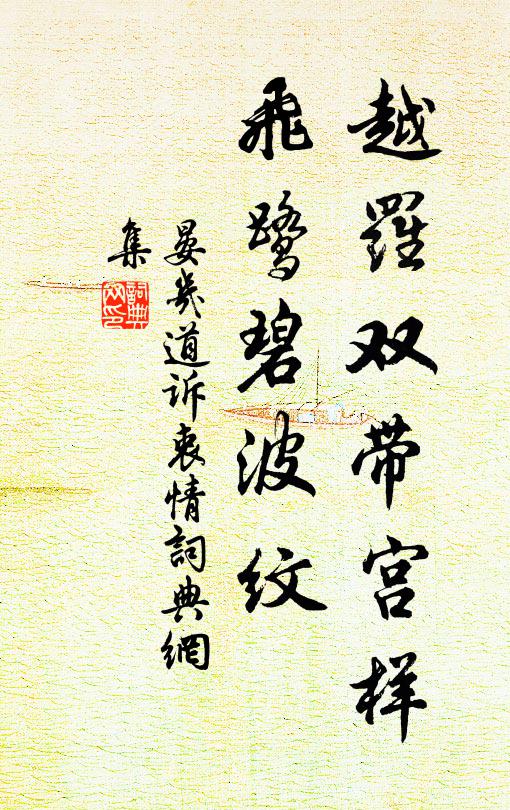 越羅双带宫样
飛鹭碧波纹
晏幾道訴衷情詞典網
集
詞典
网印